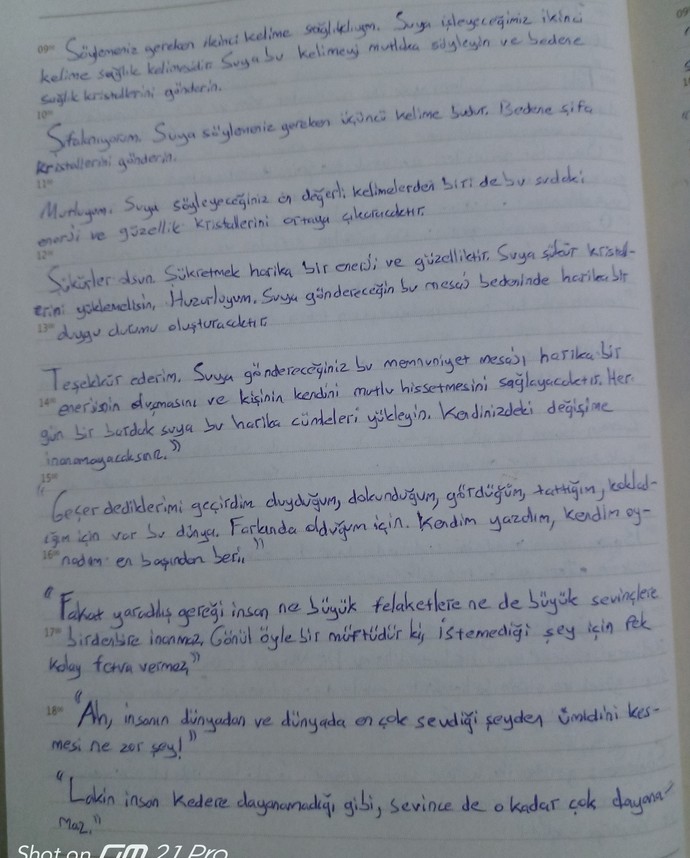 09⁰⁰ Söylemeniz gereken ikinci kelime sağlıklıyım. Suya işleyeceğiniz ikinci
kelime sağlık kelimesidir. Suya bu kelimeyi mutlaka söyleyin ve bedene
sağlık kristallerini gönderin.
10⁰⁰
Şifalanıyorum. Suya söylemeniz gereken üçüncü kelime budur. Bedene şifa
kristallerini gönderin.
11⁰⁰
Mutluyum. Suya söyleyeceğiniz en değerli kelimelerden biri de bu sudaki
enerji ve güzellik kristallerini ortaya çıkaracaktır.
12⁰⁰
Şükürler olsun. Şükretmek harika bir enerji ve güzelliktir. Suya şükür kristal-
erini yüklemelisin. Huzurluyum. Suya göndereceğin bu mesaj bedeninde harika bir
13⁰⁰ duygu durumu oluşturacaktır.
Teşekkür ederim. Suya göndereceğiniz bu memnuniyet mesajı harika bir
14⁰⁰ enerjinin oluşmasını ve kişinin kendini mutlu hissetmesini sağlayacaktır. Her
gün bir bardak suya bu harika cümleleri yükleyin. Kendinizdeki değişime
inanamayacaksınız."
15⁰⁰
"Geçer dediklerimi geçirdim duyduğum, dokunduğum, gördüğüm, tattığım, kokladı-
ığım için var bu dünya. Farkında olduğum için. Kendim yazdım, kendim oy-
16⁰⁰ nadım en başından beri."
"Fakat yaradılış gereği insan ne büyük felaketlere ne de büyük sevinçlere
17⁰⁰ birdenbire inanmaz. Gönül öyle bir müftüdür ki, istemediği şey için pek
kolay fetva vermez."
18⁰⁰ "Ah, insanın dünyadan ve dünyada en çok sevdiği şeyden ümidini kes-
mesi ne zor şey!"
"Lakin insan kedere dayanamadığı gibi, sevince de o kadar çok dayana-
maz."
Shot on GM 21 Pro